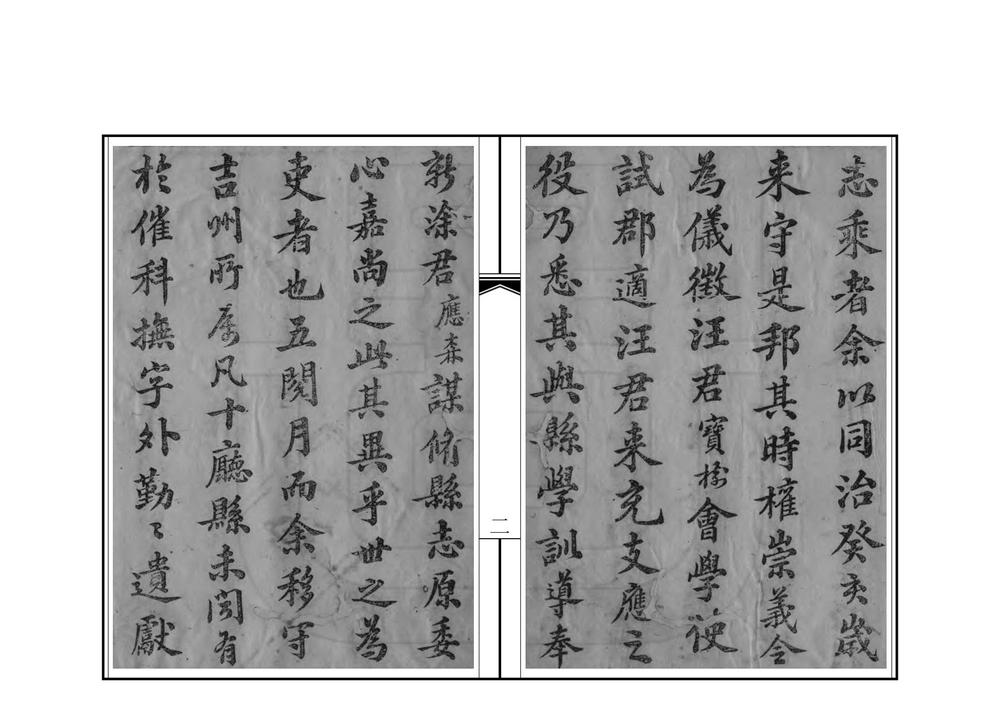 志乘者余以同治癸亥歲
来守是邦其時権崇義令
為儀徴汪君寶樹會學使
試郡適汪君来充支應之
役乃悉其與縣學訓導奉
二
新涂君應森謀脩縣志原委
心嘉尚之此其異乎世之為
吏者也五閱月而余移守
吉州所属凡十廳縣未聞有
於催科撫字外勤〻遺獻